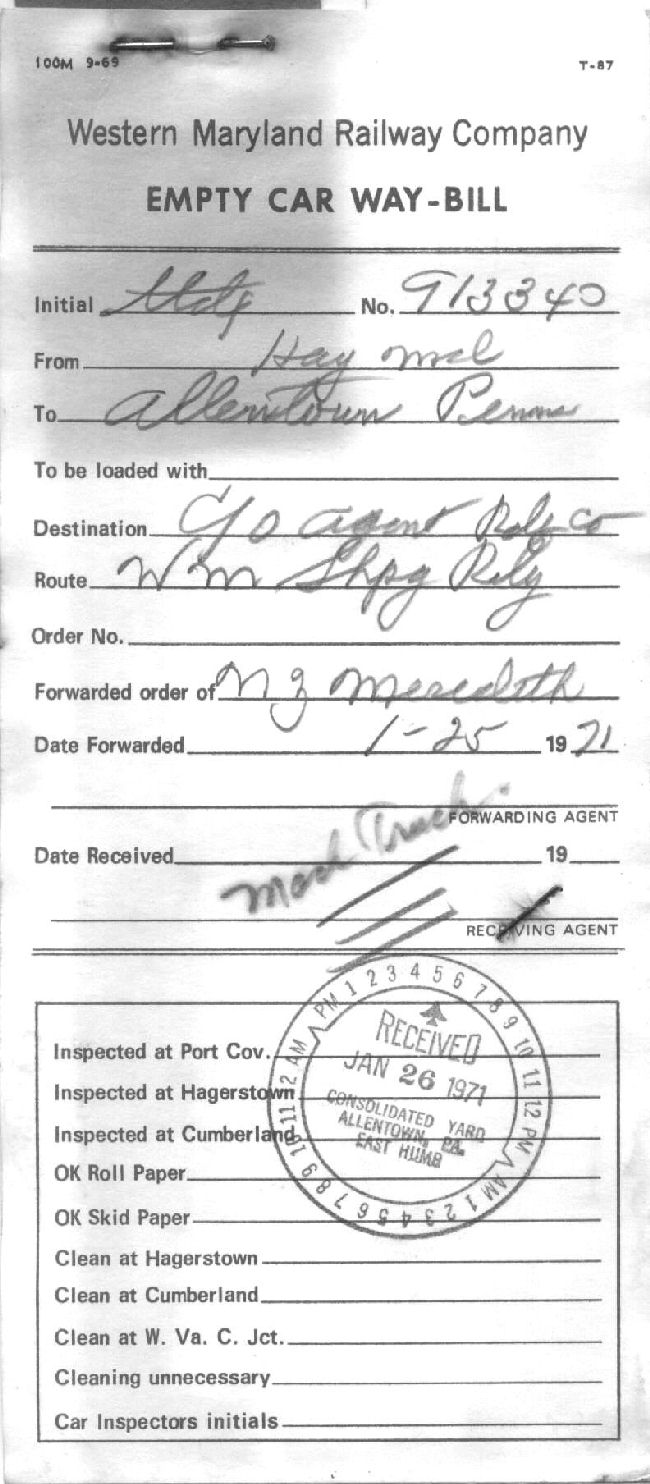 100M 9-69 T-87
Western Maryland Railway Company
EMPTY CAR WAY-BILL
Initial No. 913340
From Hay Md
To Allentown Penna
To be loaded with
Destination C/o agent Rdg Co
Route W m Shpg Rdg
Order No.
Forwarded order of Meredith
Date Forwarded 1-25 19 71
FORWARDING AGENT
Track
Date Received 19
RECEIVING AGENT
PM 1 2 3 4 5 6 7 8 9 10 11 12 PM AM 1 2 3 4 5 6 7 8 9 10 11 12 AM
RECEIVED
JAN 26 1971
CONSOLIDATED YARD
ALLENTOWN, PA.
EAST HUMB
Inspected at Port Cov.
Inspected at Hagerstown
Inspected at Cumberland
OK Roll Paper
OK Skid Paper
Clean at Hagerstown
Clean at Cumberland
Clean at W. Va. C. Jct.
Cleaning unnecessary
Car Inspectors initials